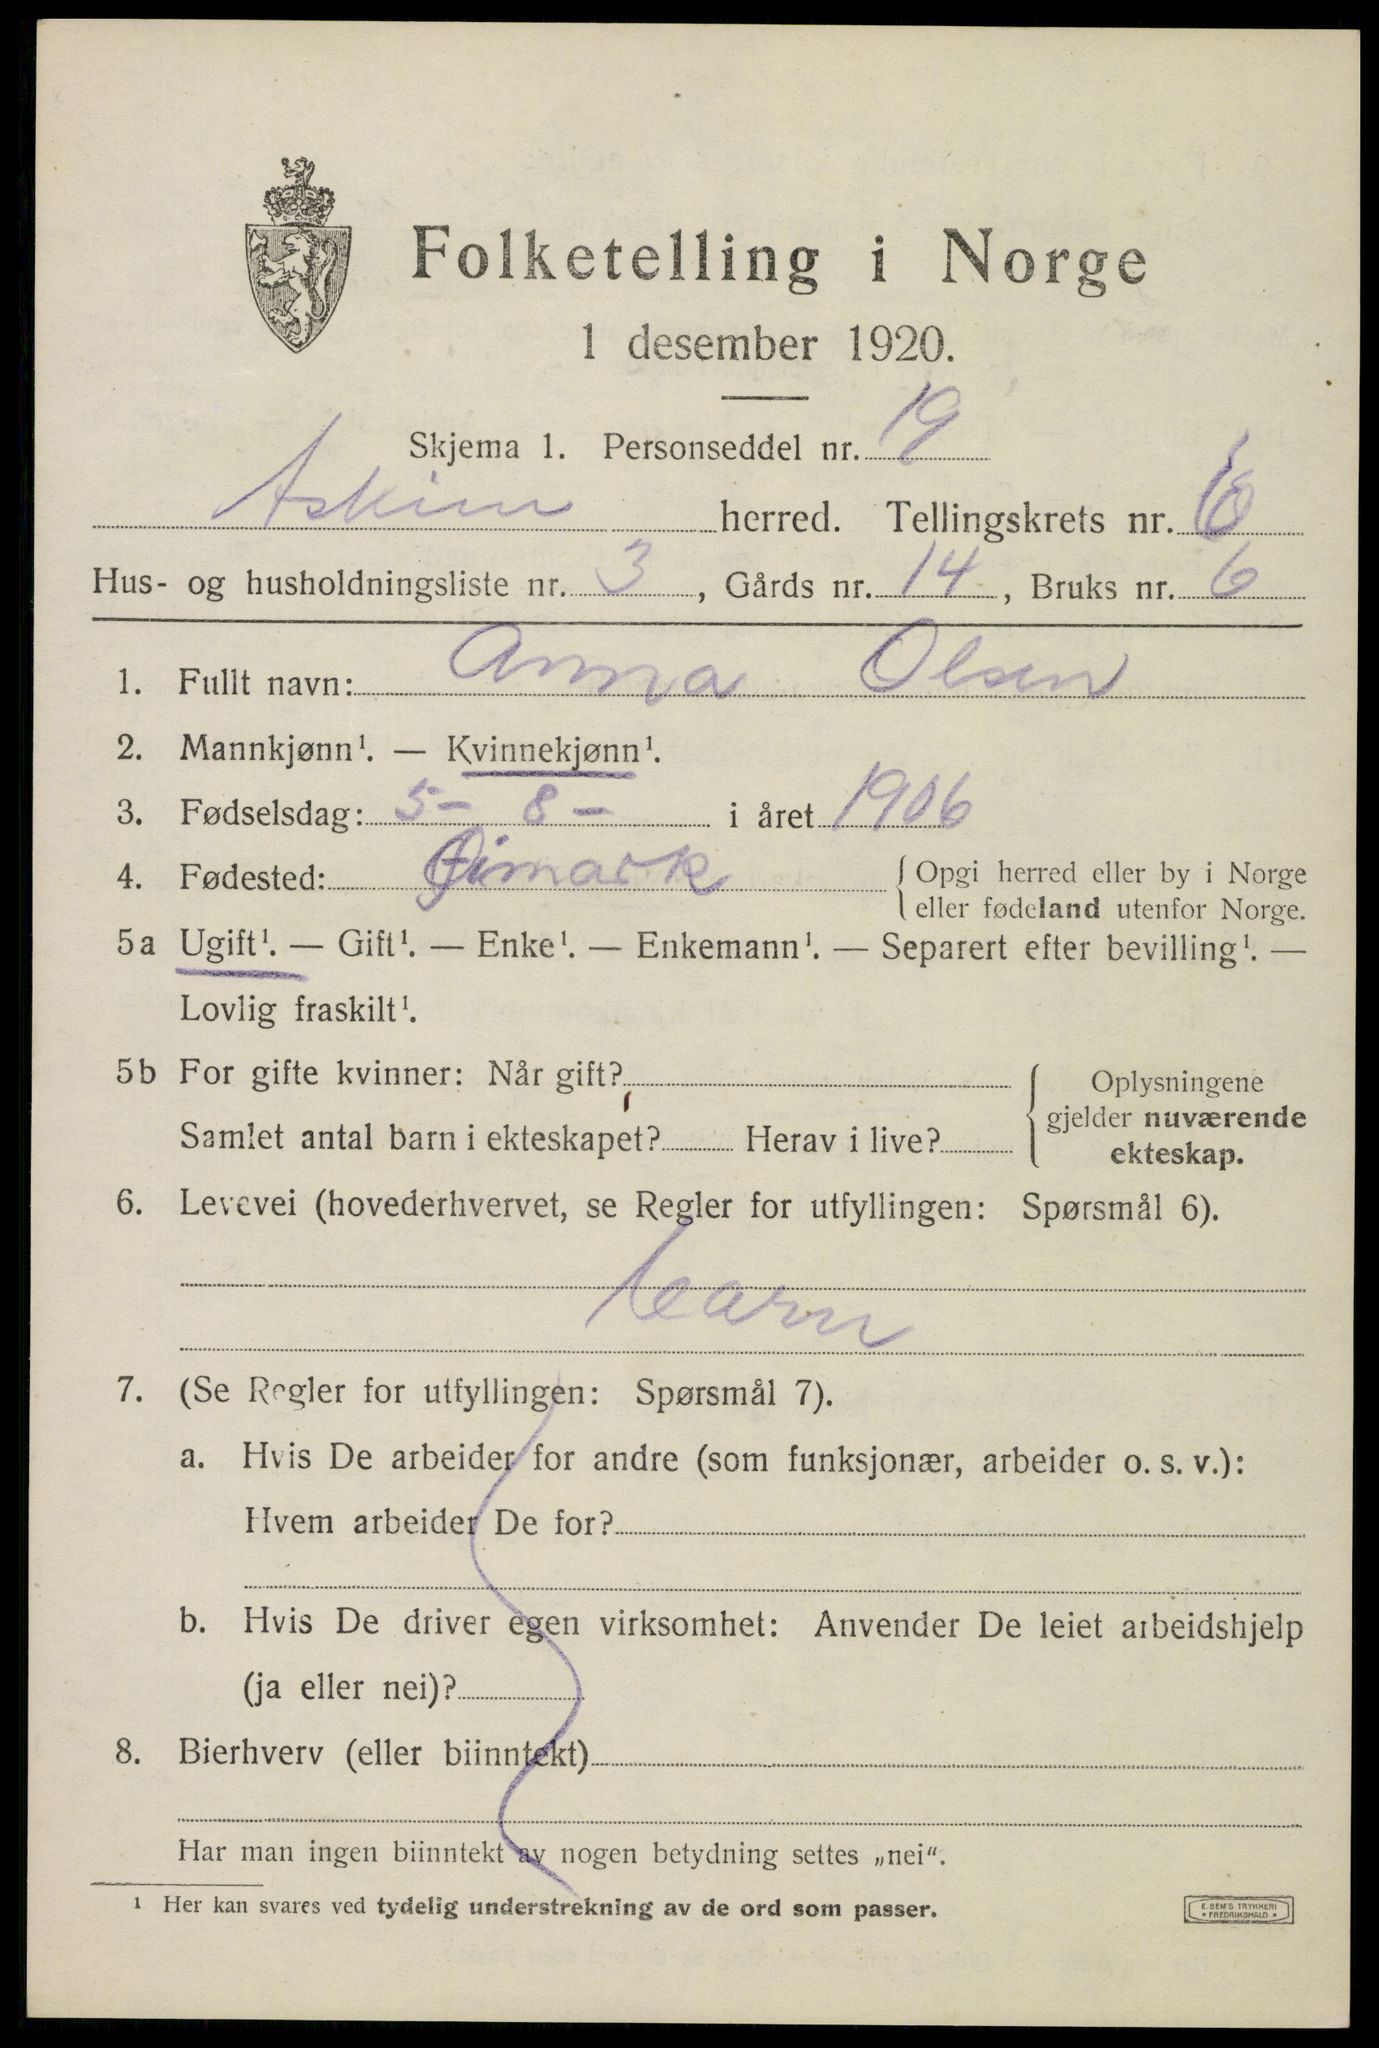 Folketelling i Norge
1 desember 1920.
Skjema 1. Personseddel nr. 19
Askim herred. Tellingskrets nr. 6
Hus- og husholdningsliste nr. 3, Gårds nr. 14, Bruks nr. 6
1. Fullt navn: Anna Olsen
2. Mannkjønn¹. — Kvinnekjønn¹.
3. Fødselsdag: 5 - 8 - i året 1906
4. Fødested: Øimark { Opgi herred eller by i Norge
eller fødeland utenfor Norge.
5a Ugift¹. — Gift¹. — Enke¹. — Enkemann¹. — Separert efter bevilling¹. —
Lovlig fraskilt¹.
5b For gifte kvinner: Når gift? { Oplysningene
gjelder nuværende
Samlet antal barn i ekteskapet? Herav i live? ekteskap.
6. Levevei (hovederhvervet, se Regler for utfyllingen: Spørsmål 6).
barn
7. (Se Regler for utfyllingen: Spørsmål 7).
a. Hvis De arbeider for andre (som funksjonær, arbeider o. s. v.):
Hvem arbeider De for?
b. Hvis De driver egen virksomhet: Anvender De leiet arbeidshjelp
(ja eller nei)?
8. Bierhverv (eller biinntekt)
Har man ingen biinntekt av nogen betydning settes „nei“.
¹ Her kan svares ved tydelig understrekning av de ord som passer.
E. SEM'S TRYKKERI
* FREDRIKSHALD *